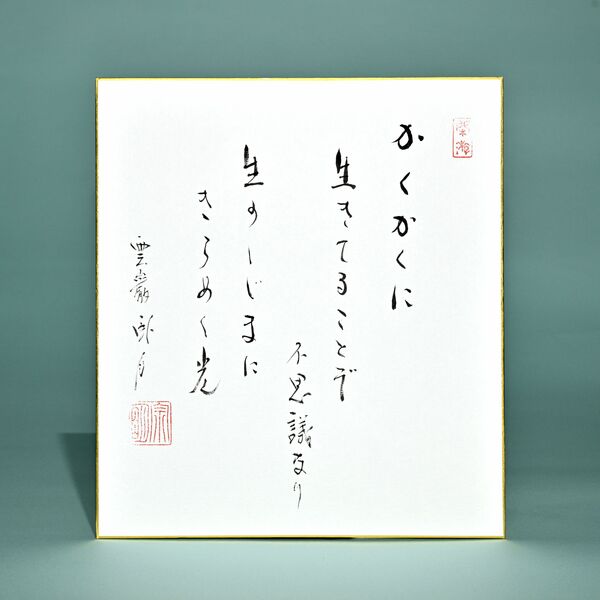 かくかくに
生きてることぞ
不思議なり
生のしじまに
きらめく光
雲巌